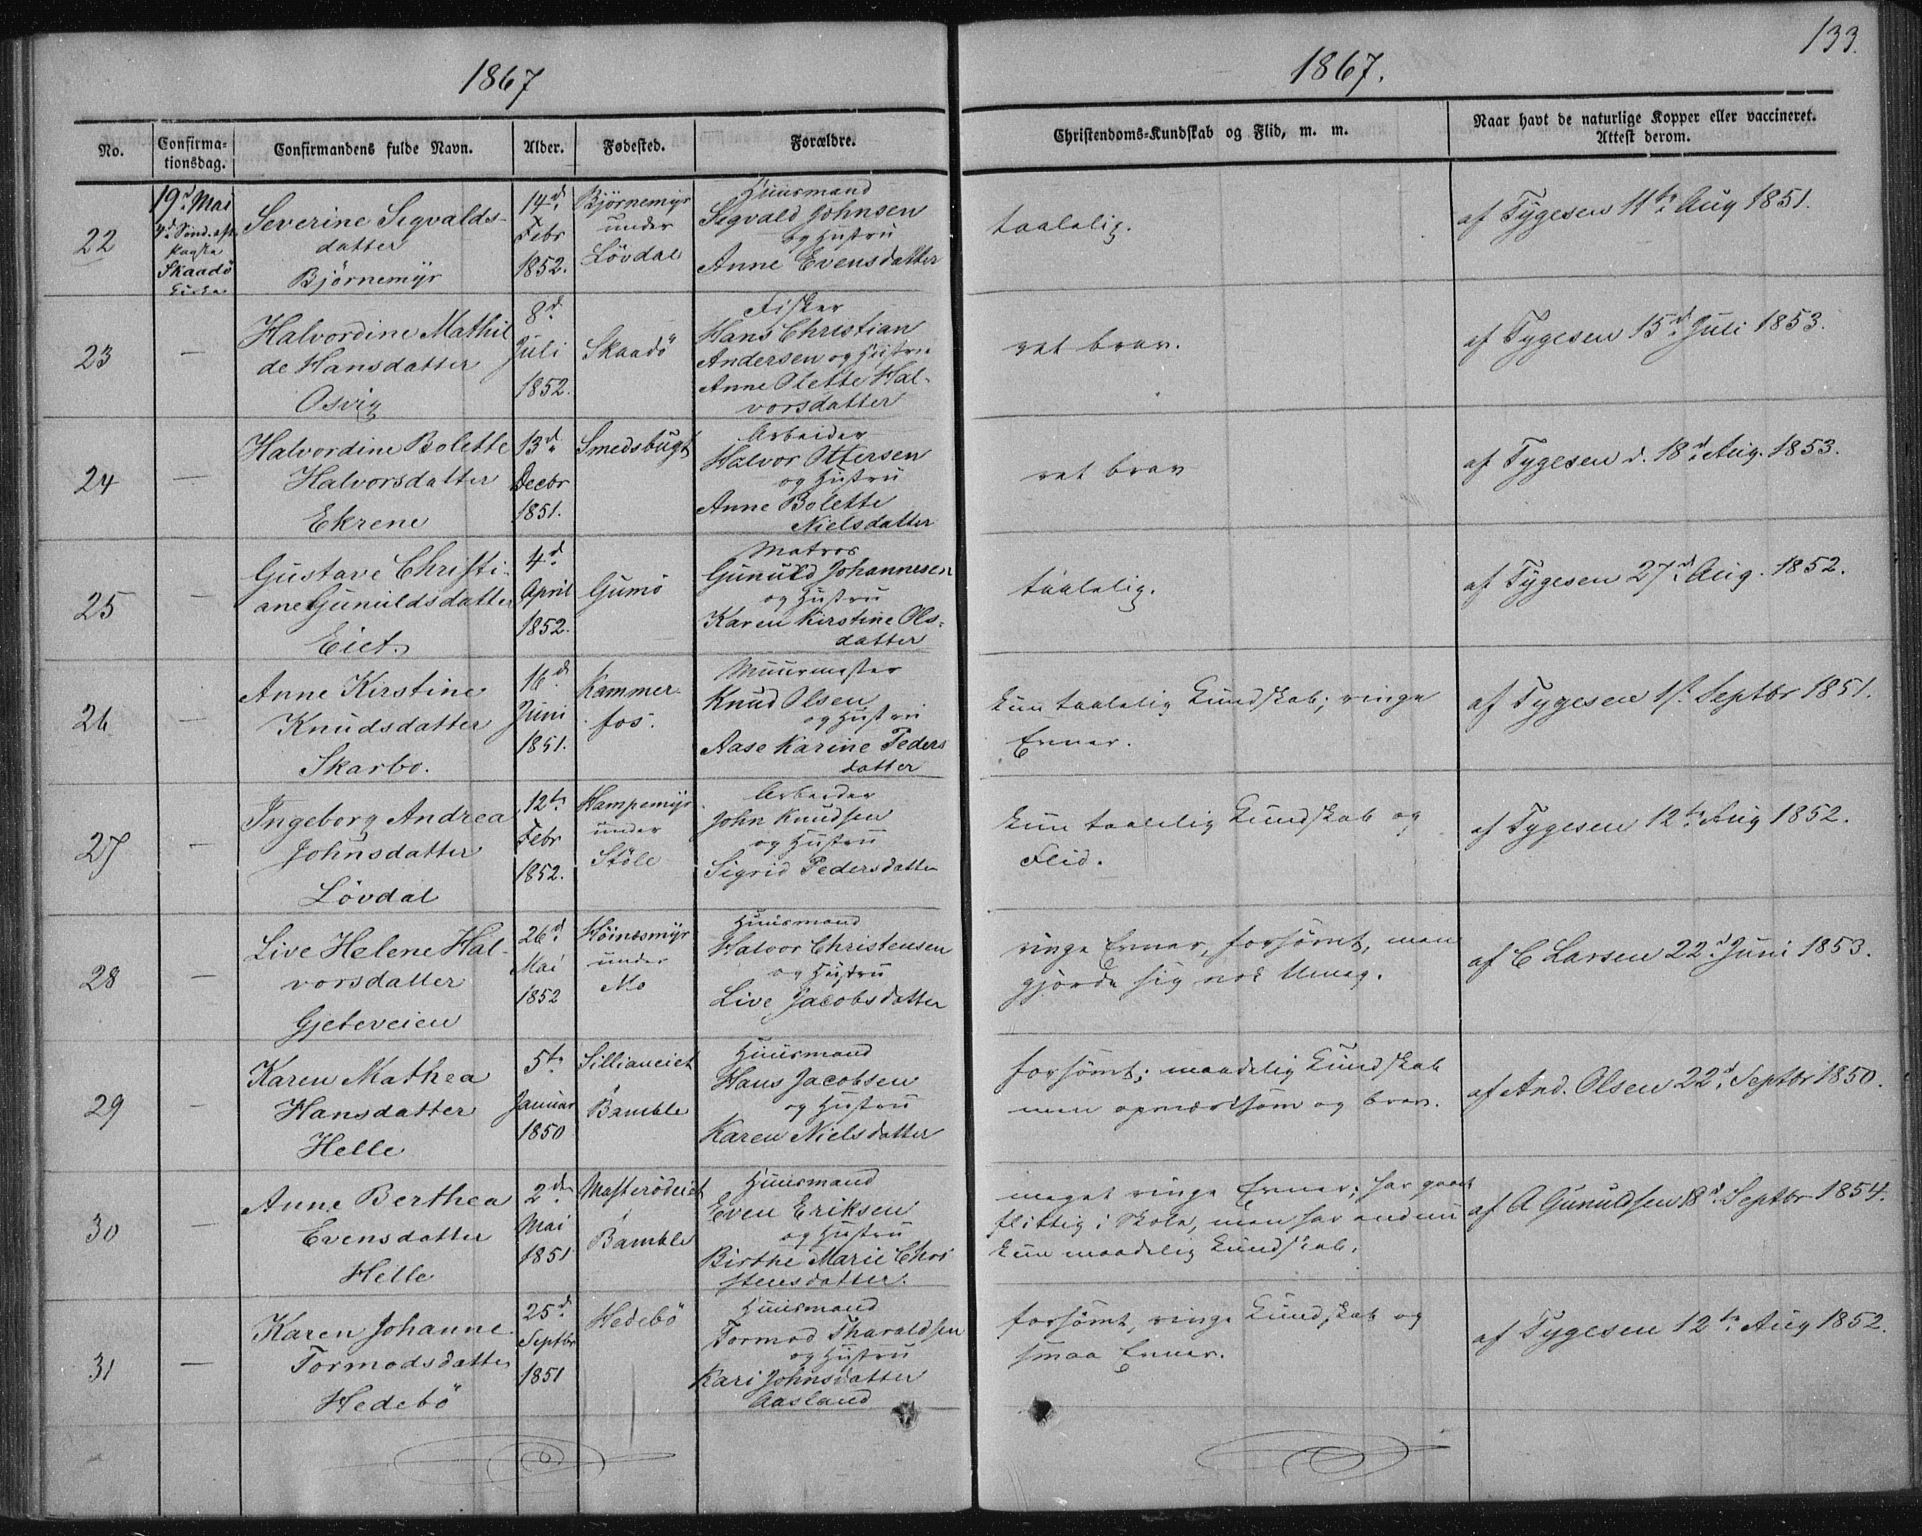 133.
1867
1867.
No.
Confirma-
tionsdag.
Confirmandens fulde Navn.
Alder.
Fødested.
Forældre.
Christendoms-Kundskab og Flid, m. m.
Naar havt de naturlige Kopper eller vaccineret.
Attest derom.
22
19d Mai
4d Sønd. eft.
Paaske
Skaadö
Kirke
Severine Sigvalds-
datter
Björnemyr
14d
Febr
1852.
Björnemyr
under
Lövdal
Huusmand
Sigvald Johnsen
og Hustru
Anne Evensdatter
taalelig.
af Tygesen 11te Aug 1851.
23
—
Halvordine Mathil
de Hansdatter
Osvig
8d
Juli
1852.
Skaadö
Fisker
Hans Christian
Andersen og Hustru
Anne Olette Hal-
vorsdatter
ret brav.
af Tygesen 15d Juli 1853.
24
—
Halvordine Bolette
Halvorsdatter
Ekrene
13d
Decbr
1851.
Smedsbugt
Arbeider
Halvor Ottersen
og Hustru
Anne Bolette
Nielsdatter
ret brav
af Tygesen d. 18d Aug. 1853.
25
—
Gustave Christi-
ane Gunuldsdatter
Eiet.
4d
April
1852.
Gumö
Matros
Gunuld Johannesen
og Hustru
Karen Kirstine Ols-
datter
taalelig.
af Tygesen 27d Aug. 1852.
26
—
Anne Kirstine
Knudsdatter
Skarbo.
16d
Juni
1851.
Kammer-
fos.
Muurmester
Knud Olsen
og Hustru
Aase Karine Peders
datter
kun taalelig Kundskab; ringe
Evner.
af Tygesen 1st Septbr 1851.
27
—
Ingeborg Andrea
Johnsdatter
Lövdal
12te
Febr
1852.
Hampemyr
under
Stöle
Arbeider
John Knudsen
og Hustru
Sigrid Pedersdatter
kun taalelig Kundskab og
Flid.
af Tygesen 12te Aug 1852.
28
—
Live Helene Hal-
vorsdatter
Gjeteveien
26d
Mai
1852
Höinesmyr
under
Mo
Huusmand
Halvor Christensen
og Hustru
Live Jacobsdatter
ringe Evner, forsömt, men
gjorde sig nok Umag.
af C Larsen 22d Juni 1853.
29
—
Karen Mathea
Hansdatter
Helle
5te
Januar
1850
Sillianeiet
i
Bamble
Huusmand
Hans Jacobsen
og Hustru
Karen Nielsdatter
forsömt; maadelig Kundskab
men opmærksom og brav.
af And. Olsen 22d Septbr 1850.
30
—
Anne Berthea
Evensdatter
Helle
2den
Mai
1851
i
Bamble
Huusmand
Even Eriksen
og Hustru
Birthe Marie Chri
stensdatter.
meget ringe Evner; har gaaet
flittig i Skole, men har endnu
kun maadelig Kundskab.
af A Gunuldsen 18d Septbr 1854.
31
—
Karen Johanne
Tormodsdatter
Hedebö
25d
Septbr
1851
Hedebö
Huusmand
Tormod Tharaldsen
og Hustru
Kari Johnsdatter
Aasland
forsömt, ringe Kundskab og
smaa Evner.
af Tygesen 12te Aug 1852.